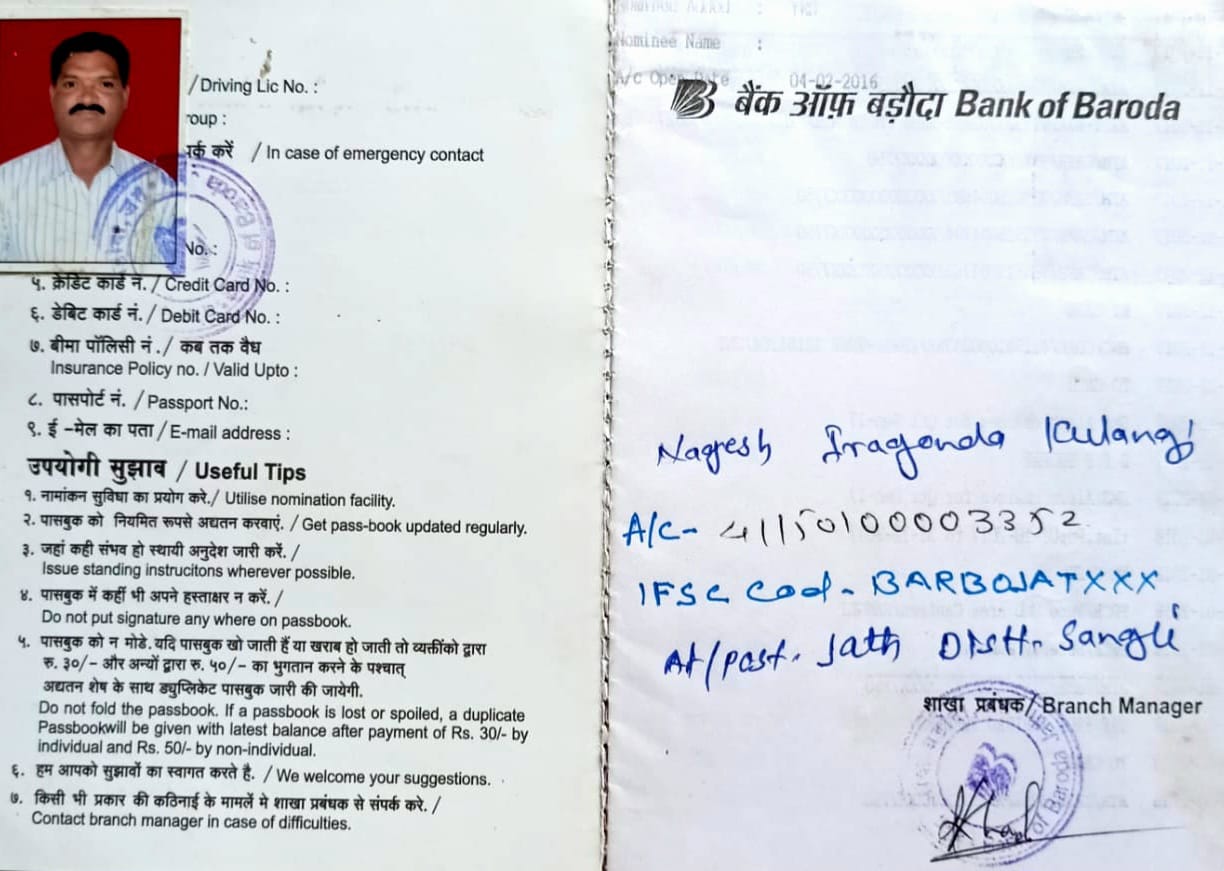 / Driving Lic No. :
roup :
र्क करें / In case of emergency contact
No. :
५. क्रेडिट कार्ड नं. / Credit Card No. :
६. डेबिट कार्ड नं. / Debit Card No. :
७. बीमा पॉलिसी नं ./ कब तक वैध
Insurance Policy no. / Valid Upto :
८. पासपोर्ट नं. / Passport No.:
९. ई -मेल का पता / E-mail address :
उपयोगी सुझाव / Useful Tips
१. नामांकन सुविधा का प्रयोग करे./ Utilise nomination facility.
२. पासबुक को नियमित रूपसे अद्यतन करवाएं. / Get pass-book updated regularly.
३. जहां कही संभव हो स्थायी अनुदेश जारी करें. /
Issue standing instrucitons wherever possible.
४. पासबुक में कहीं भी अपने हस्ताक्षर न करें. /
Do not put signature any where on passbook.
५. पासबुक को न मोडे. यदि पासबुक खो जाती हैं या खराब हो जाती तो व्यक्तींको द्वारा
रु. ३०/- और अन्यों द्वारा रु. ५०/- का भुगतान करने के पश्चात्
अद्यतन शेष के साथ ड्युप्लिकेट पासबुक जारी की जायेगी.
Do not fold the passbook. If a passbook is lost or spoiled, a duplicate
Passbookwill be given with latest balance after payment of Rs. 30/- by
individual and Rs. 50/- by non-individual.
६. हम आपको सुझावों का स्वागत करते है. / We welcome your suggestions.
७. किसी भी प्रकार की कठिनाई के मामलें मे शाखा प्रबंधक से संपर्क करे. /
Contact branch manager in case of difficulties.
Nominee Name :
A/c Open Date 04-02-2016
बैंक ऑफ़ बड़ौदा Bank of Baroda
Nagesh Iragonda Kulangi
A/c- 41150100003352
IFSC Cod- BARBOJATXXX
At/post. Jath Distt- Sangli
शाखा प्रबंधक/ Branch Manager
of Baroda